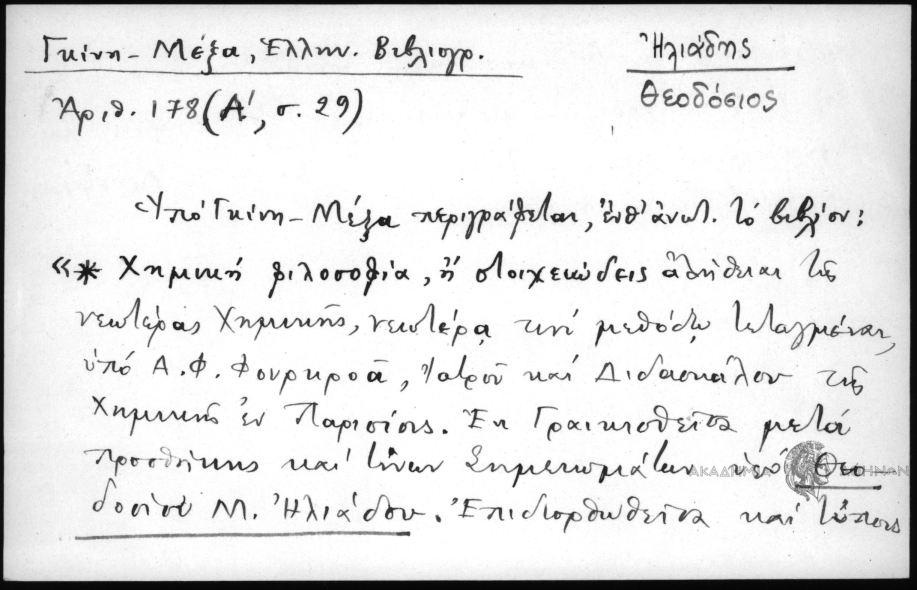 Γκίνη – Μέξα, Ἑλλην. Βιβλιογρ.
Ἠλιάδης
Θεοδόσιος
Ἀριθ. 178 (Α΄, σ. 29)
Ὑπό Γκίνη – Μέξα περιγράφεται, ἐνθ' ἀνωτ. τό βιβλίον:
«* Χημική φιλοσοφία, ἤ στοιχειώδεις ἀλήθειαι τῆς
νεωτέρας Χημικῆς, νεωτέρᾳ τινί μεθόδῳ τεταγμέναι,
ὑπό Α. Φ. Φουρκροᾶ, Ἰατροῦ καί Διδασκάλου τῆς
Χημικῆς ἐν Παρισίοις. Ἐκ Γραικισθεῖσα μετά
προσθήκης καί τινων Σημειωμάτων ὑπό Θεο
δοσίου Μ. Ἠλιάδου. Ἐπιδιορθωθεῖσα καί τύποις
ΑΚΑΔΗΜΙΑ ΑΘΗΝΩΝ